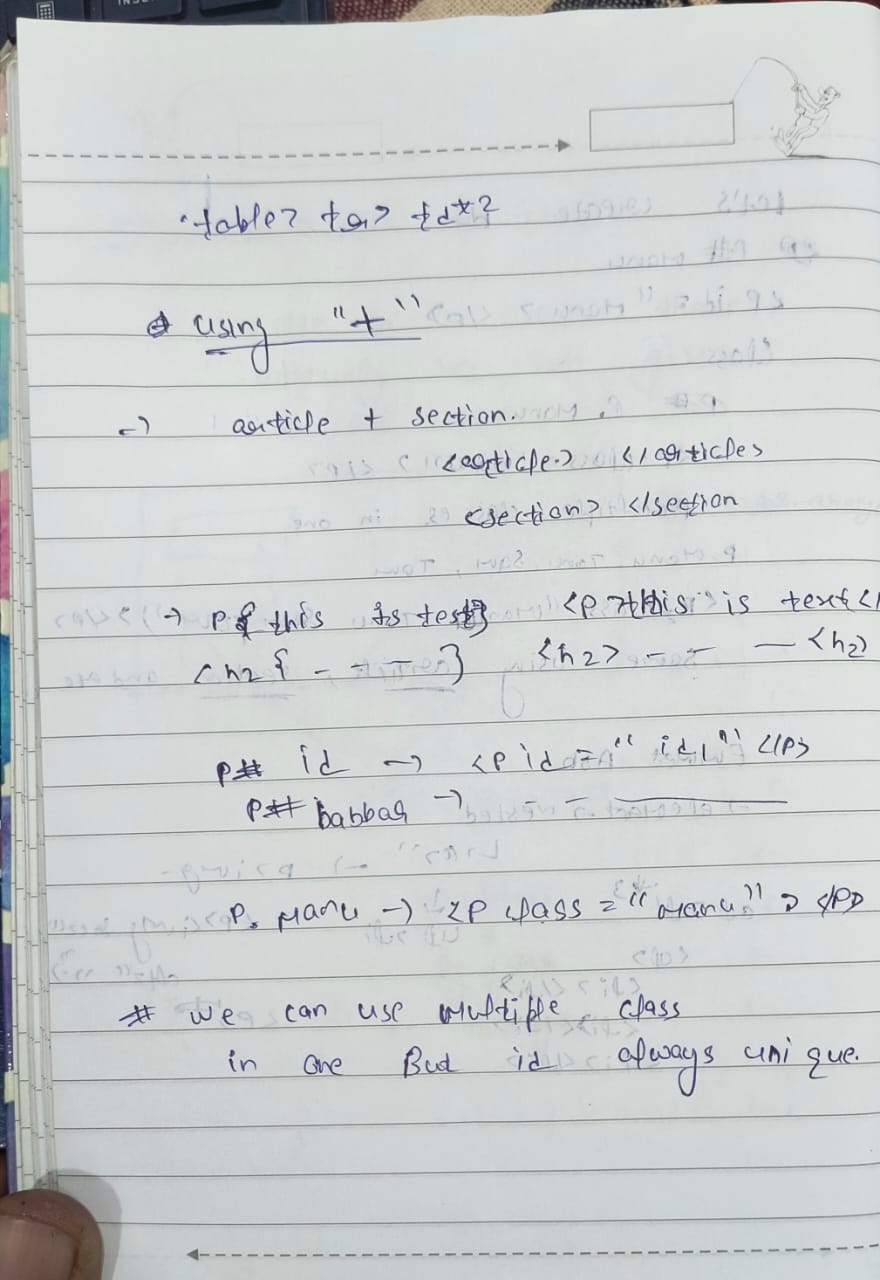 table> tr> td*2
using "+"
-> article + section.
<article> </article>
<section> </section
-> p{this is test} <p>this is text</
<h2{- - - } <h2> - - - <h2>
p# id -> <p id="id1"</p>
p# babbar -> - - ——
p. Manu -> <p class="Manu"></p>
# we can use multiple class
in one But id always unique.